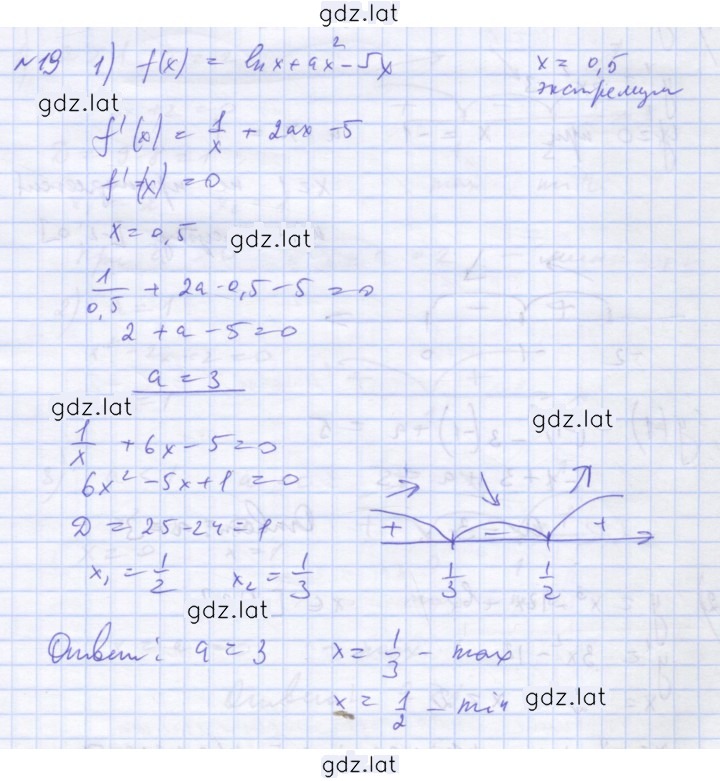 gdz.lat
№19 1) f(x) = ln x + ax² - 5x x = 0,5
экстремум
gdz.lat
f'(x) = 1/x + 2ax - 5
f'(x) = 0
x = 0,5
gdz.lat
1/0,5 + 2a·0,5 - 5 = 0
2 + a - 5 = 0
a = 3
gdz.lat
gdz.lat
1/x + 6x - 5 = 0
6x² - 5x + 1 = 0
D = 25 - 24 = 1
+ - +
x₁ = 1/2 x₂ = 1/3
1/3 1/2
gdz.lat
Ответ: a = 3 x = 1/3 - max
x = 1/2 - min
gdz.lat
gdz.lat